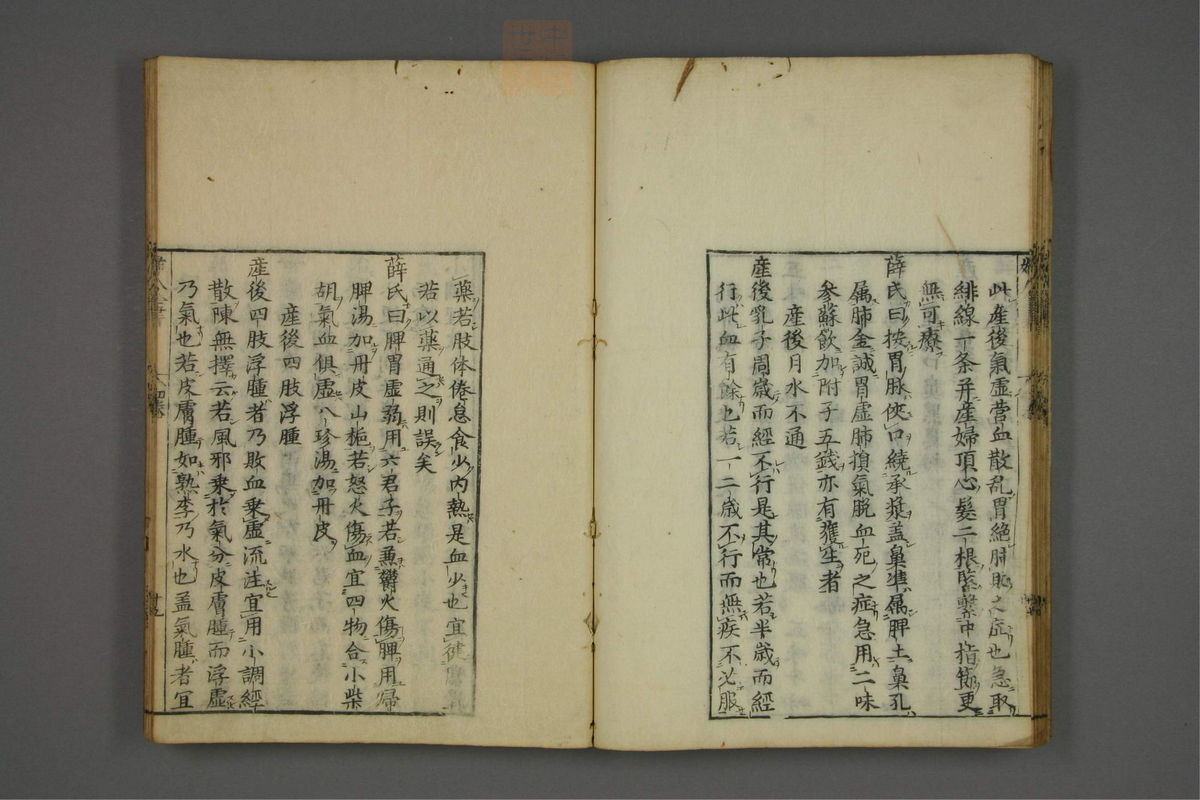 此産後氣虛营血散乱胃絶肺敗之症也急取
緋線一条并産婦頂心髮二根緊繫中指節更
無可療
薛氏曰按胃脉俠口繞承漿盖臯準属脾土臯孔
属肺金誠胃虛肺損氣脱血死之症急用二味
参蘇飲加附子五錢亦有獲生者
産後月水不通
産後乳子周歲而經不行是其常也若半歲而經
行此血有餘也若一二歲不行而無疾不必服
藥若肢体倦怠食少内熱是血少也宜健脾胃
若以藥通之則誤矣
薛氏曰脾胃虛弱用六君子若兼欝火傷脾用歸
脾湯加丹皮山梔若怒火傷血宜四物合小柴
胡氣血俱虛八珍湯加丹皮
産後四肢浮腫
産後四肢浮腫者乃敗血乗虛流注宜用小調經
散陳無擇云若風邪乗於氣分皮膚腫而浮虛
乃氣也若皮膚腫如熟李乃水也盖氣腫者宜